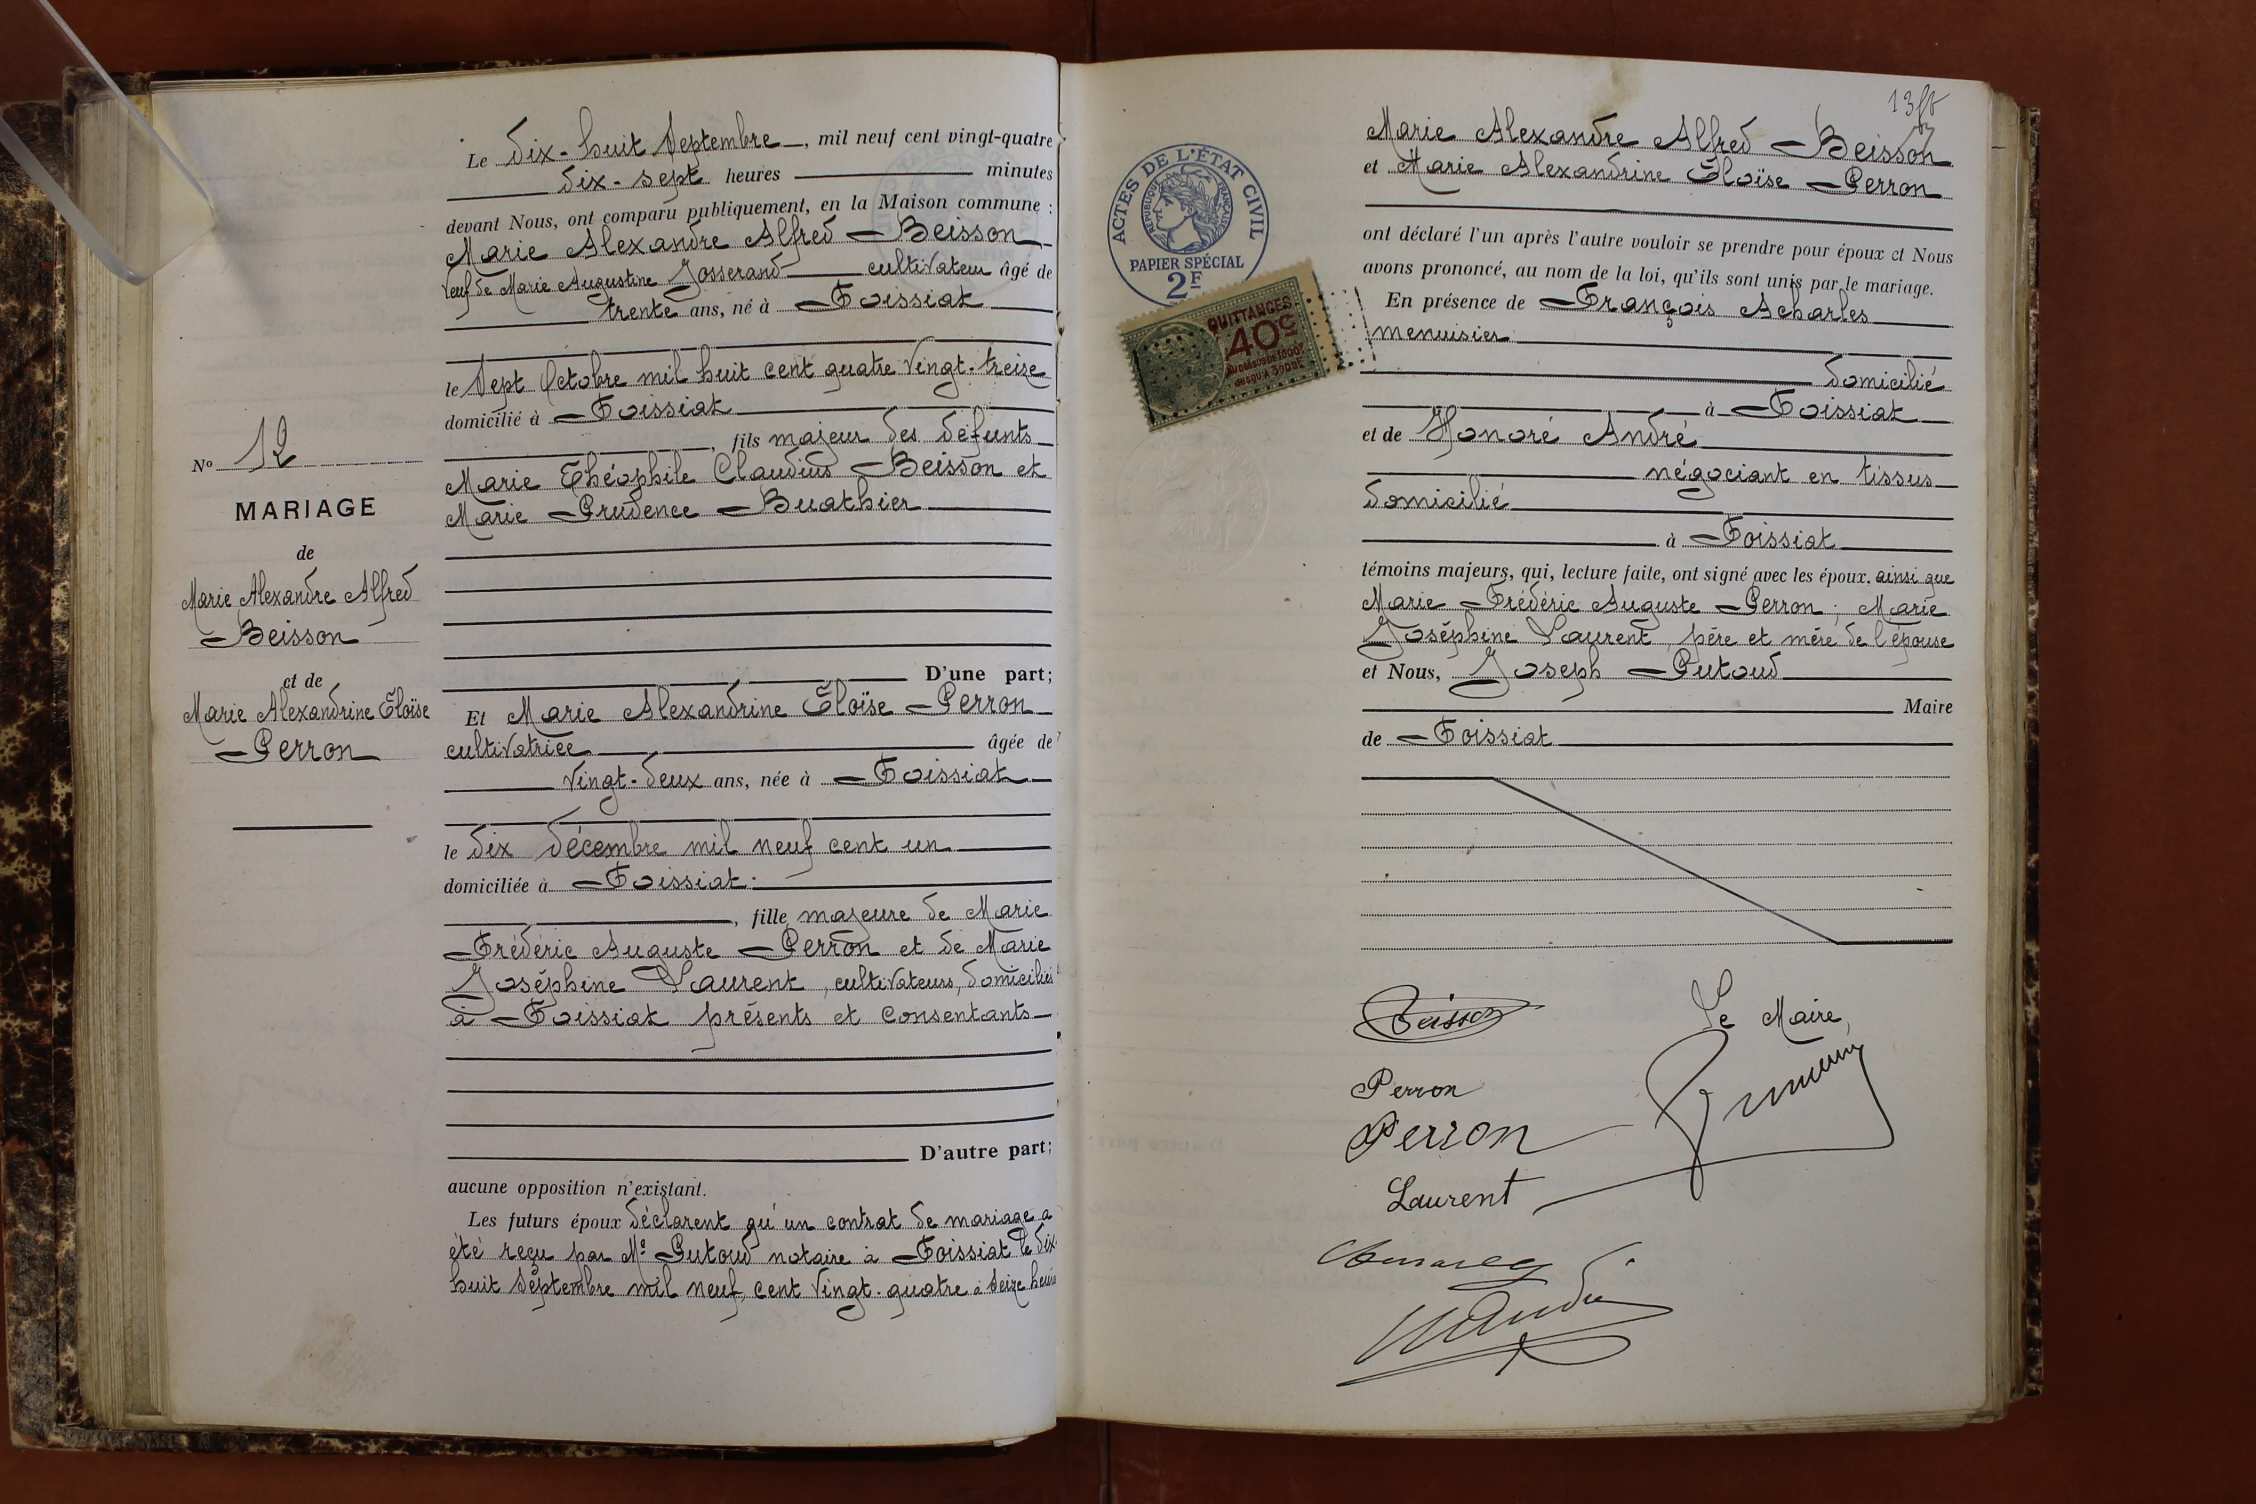 Le dix-huit Septembre, mil neuf cent vingt-quatre
dix-sept heures minutes
devant Nous, ont comparu publiquement, en la Maison commune :
Marie Alexandre Alfred Beisson
veuf de Marie Augustine Josserand cultivateur âgé de
trente ans, né à Foissiat
le Sept Octobre mil huit cent quatre vingt-treize
domicilié à Foissiat
, fils majeur des défunts
Marie Théophile Claudius Beisson et
Marie Prudence Buathier
D'une part;
Et Marie Alexandrine Eloïse Perron
cultivatrice âgée de
vingt-deux ans, née à Foissiat
le dix décembre mil neuf cent un
domiciliée à Foissiat.
, fille majeure de Marie
Frédéric Auguste Perron et de Marie
Joséphine Laurent, cultivateurs, domiciliés
à Foissiat présents et consentants
D'autre part;
aucune opposition n'existant.
Les futurs époux déclarent qu'un contrat de mariage a
été reçu par Me Putoud notaire à Foissiat le dix-
huit septembre mil neuf cent vingt-quatre à seize heures
No 12
MARIAGE
de
Marie Alexandre Alfred
Beisson
et de
Marie Alexandrine Eloïse
Perron
13
Marie Alexandre Alfred Beisson
et Marie Alexandrine Eloïse Perron
ont déclaré l'un après l'autre vouloir se prendre pour époux et Nous
avons prononcé, au nom de la loi, qu'ils sont unis par le mariage.
En présence de François Acharles
menuisier
domicilié
à Foissiat
et de Honoré André
négociant en tissus
domicilié
à Foissiat
témoins majeurs, qui, lecture faite, ont signé avec les époux. ainsi que
Marie Frédéric Auguste Perron; Marie
Joséphine Laurent, père et mère de l'épouse
et Nous, Joseph Putoud
Maire
de Foissiat
ACTES DE L'ÉTAT CIVIL
RÉPUBLIQUE FRANÇAISE
PAPIER SPÉCIAL
2F
QUITTANCES
40c
AU DESSUS DE 1000F
JUSQU'À 3000F
Beisson
Le Maire,
Perron
Perron
Laurent